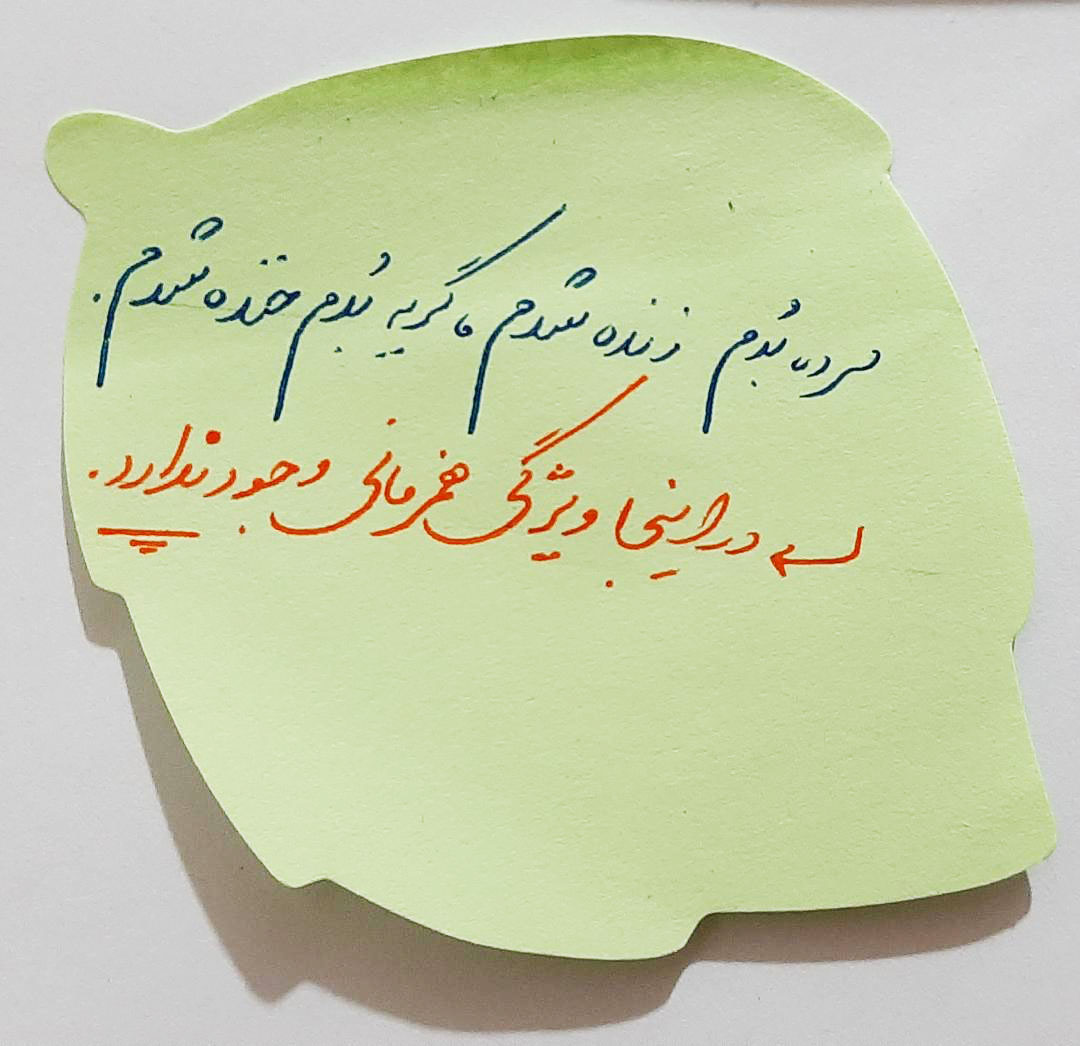 مرده بُدم زنده شدم، گریه بُدم خنده شدم.
← در اینجا ویژگی قهرمانی وجود ندارد.